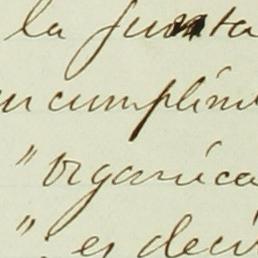 la junta
cumplim
" organica
" es deci